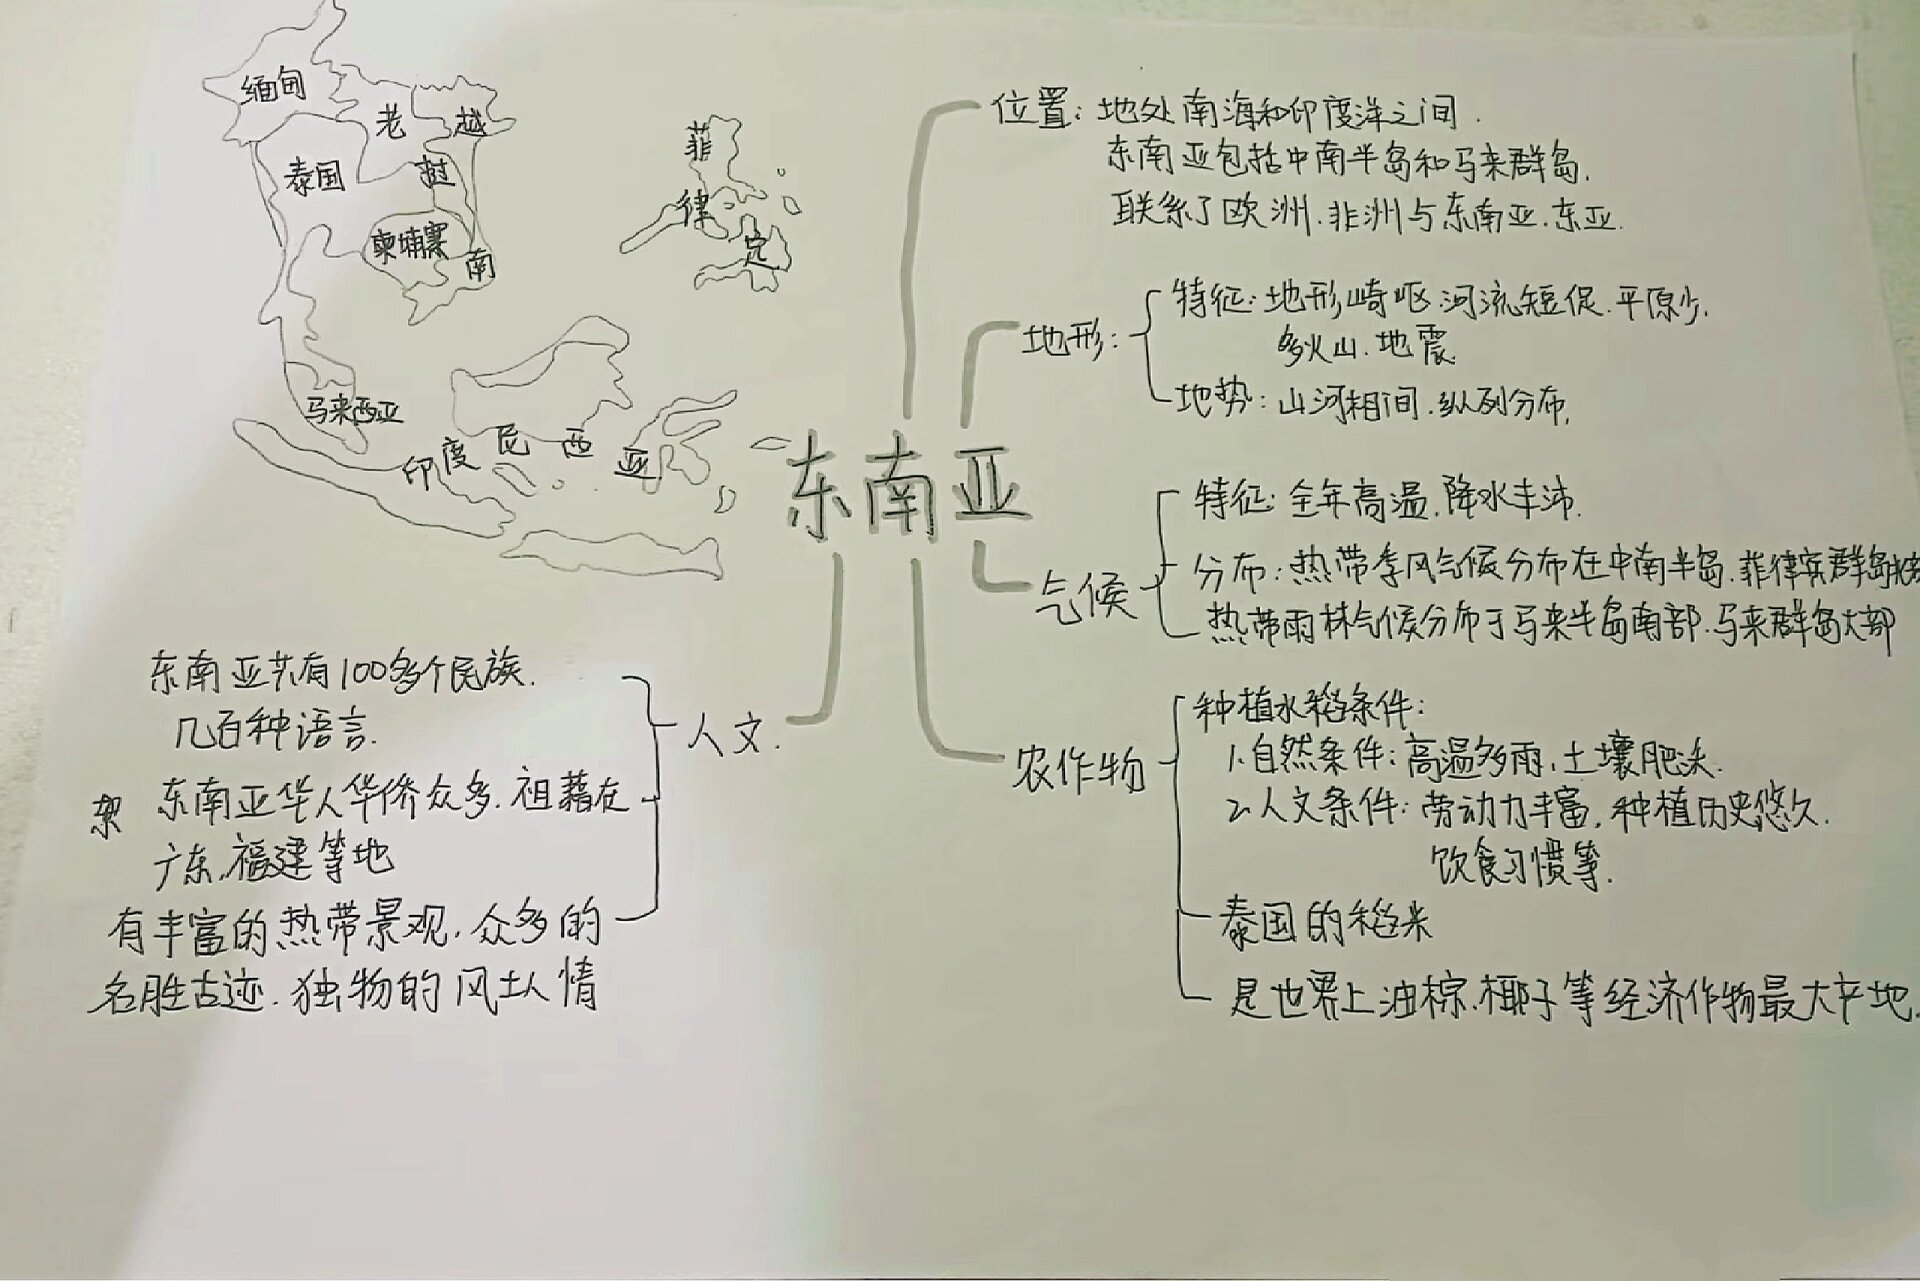 缅甸
老
越
泰国
挝
柬埔寨
南
菲
律
宾
马来西亚
印度尼西亚
东南亚
位置：地处南海和印度洋之间.
东南亚包括中南半岛和马来群岛.
联系了欧洲.非洲与东南亚.东亚.
地形：
特征：地形崎岖.河流短促.平原少,
多火山.地震.
地势：山河相间.纵列分布,
气候
特征：全年高温.降水丰沛.
分布：热带季风气候分布在中南半岛.菲律宾群岛北
热带雨林气候分布于马来半岛南部.马来群岛大部
农作物
种植水稻条件：
1.自然条件：高温多雨,土壤肥沃.
2.人文条件：劳动力丰富,种植历史悠久.
饮食习惯等.
泰国的稻米
是世界上油棕.椰子等经济作物最大产地.
人文.
东南亚共有100多个民族.
几百种语言.
东南亚华人华侨众多.祖籍在
广东.福建等地
有丰富的热带景观.众多的
名胜古迹.独物的风土人情